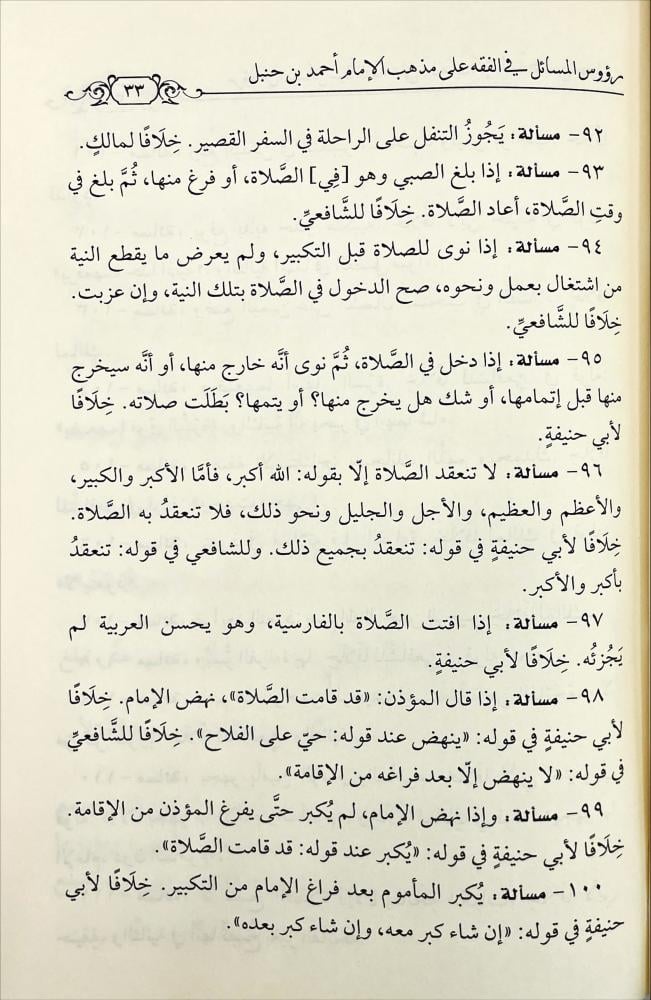 رؤوس المسائل في الفقه على مذهب الإمام أحمد بن حنبل
٣٣
٩٢- مسألة: يَجُوزُ التنفل على الراحلة في السفر القصير. خِلَافًا لمالكٍ.
٩٣- مسألة: إذا بلغ الصبي وهو [فِي] الصَّلاة، أو فرغ منها، ثُمَّ بلغ في
وقتِ الصَّلاة، أعاد الصَّلاة. خِلَافًا للشَّافعيِّ.
٩٤- مسألة: إذا نوى للصلاة قبل التكبير، ولم يعرض ما يقطع النية
من اشتغال بعمل ونحوه، صح الدخول في الصَّلاة بتلك النية، وإن عزبت.
خِلَافًا للشَّافعيِّ.
٩٥- مسألة: إذا دخل في الصَّلاة، ثُمَّ نوى أنَّه خارج منها، أو أنَّه سيخرج
منها قبل إتمامها، أو شك هل يخرج منها؟ أو يتمها؟ بَطَلَت صلاته. خِلَافًا
لأبي حنيفةٍ.
٩٦- مسألة: لا تنعقد الصَّلاة إلّا بقوله: الله أكبر، فأمَّا الأكبر والكبير،
والأعظم والعظيم، والأجل والجليل ونحو ذلك، فلا تنعقدُ به الصَّلاة.
خِلَافًا لأبي حنيفةٍ في قوله: تنعقدُ بجميع ذلك. وللشافعي في قوله: تنعقدُ
بأكبر والأكبر.
٩٧- مسألة: إذا افتت الصَّلاة بالفارسية، وهو يحسن العربية لم
يَجُزئُه. خِلَافًا لأبي حنيفةٍ.
٩٨- مسألة: إذا قال المؤذن: «قد قامت الصَّلاة»، نهض الإمام. خِلَافًا
لأبي حنيفةٍ في قوله: «ينهض عند قوله: حيّ على الفلاح». خِلَافًا للشَّافعيِّ
في قوله: «لا ينهض إلّا بعد فراغه من الإقامة».
٩٩- مسألة: وإذا نهض الإمام، لم يُكبر حتَّى يفرغ المؤذن من الإقامة.
خِلَافًا لأبي حنيفةٍ في قوله: «يُكبر عند قوله: قد قامت الصَّلاة».
١٠٠- مسألة: يُكبر المأموم بعد فراغ الإمام من التكبير. خِلَافًا لأبي
حنيفةٍ في قوله: «إن شاء كبر معه، وإن شاء كبر بعده».